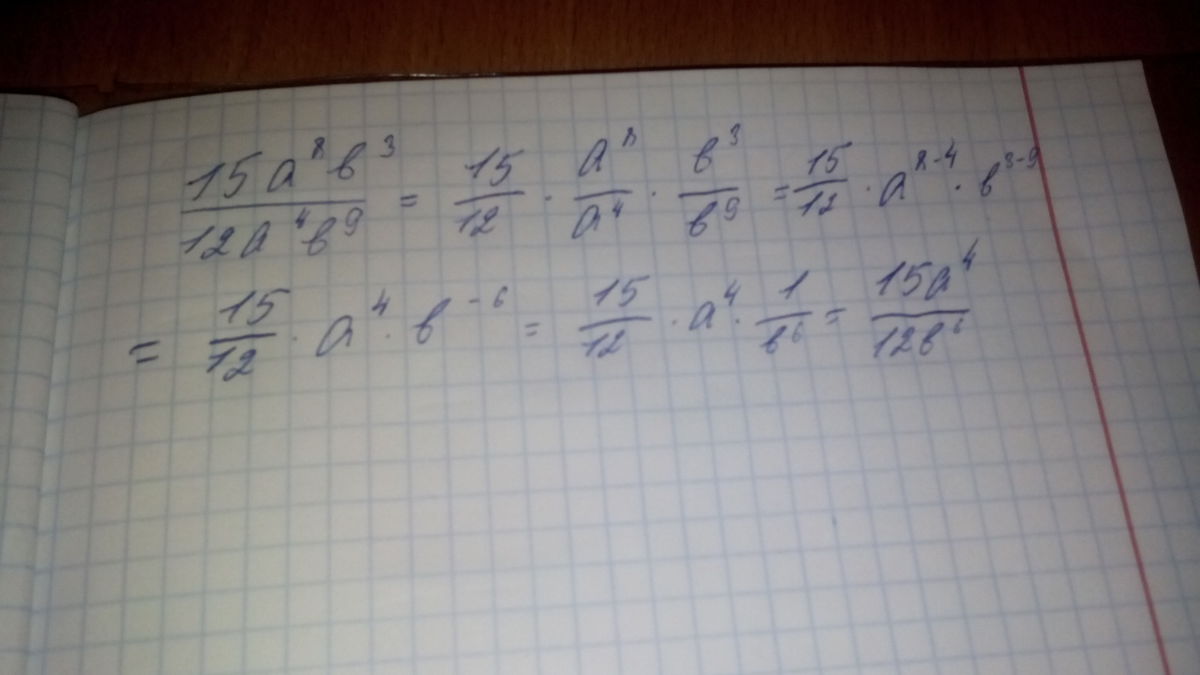 15a⁸b³/12a⁴b⁹ = 15/12 · a⁸/a⁴ · b³/b⁹ = 15/12 · a⁸⁻⁴ · b³⁻⁹
= 15/12 · a⁴ · b⁻⁶ = 15/12 · a⁴ · 1/b⁶ = 15a⁴/12b⁶